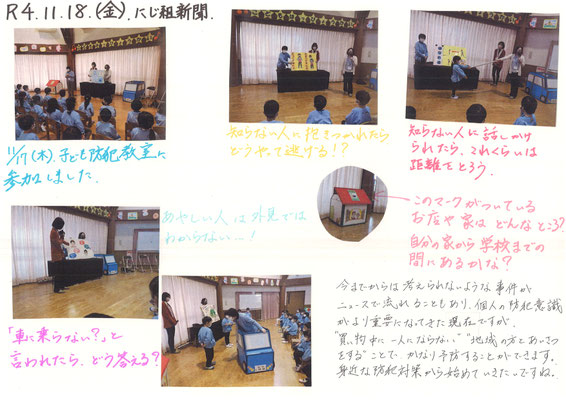 R4.11.18.(金).にじ組新聞.
11/17(木).子ども防犯教室に
参加しました.
知らない人に抱きつかれたら
どうやって逃げる!?
知らない人に話しかけ
られたら、これくらいは
距離をとろう.
あやしい人は外見では
わからない…!
このマークがついている
お店や家はどんなところ?
自分の家から学校までの
間にあるかな?
「車に乗らない?」と
言われたら、どう答える?
今までからは考えられないような事件が
ニュースで流れることもあり、個人の防犯意識
がより重要になってきた現在ですが、
"買い物中に一人にならない""地域の方とあいさつ
をする"ことで、かなり予防することができます。
身近な防犯対策から始めていきたいですね。